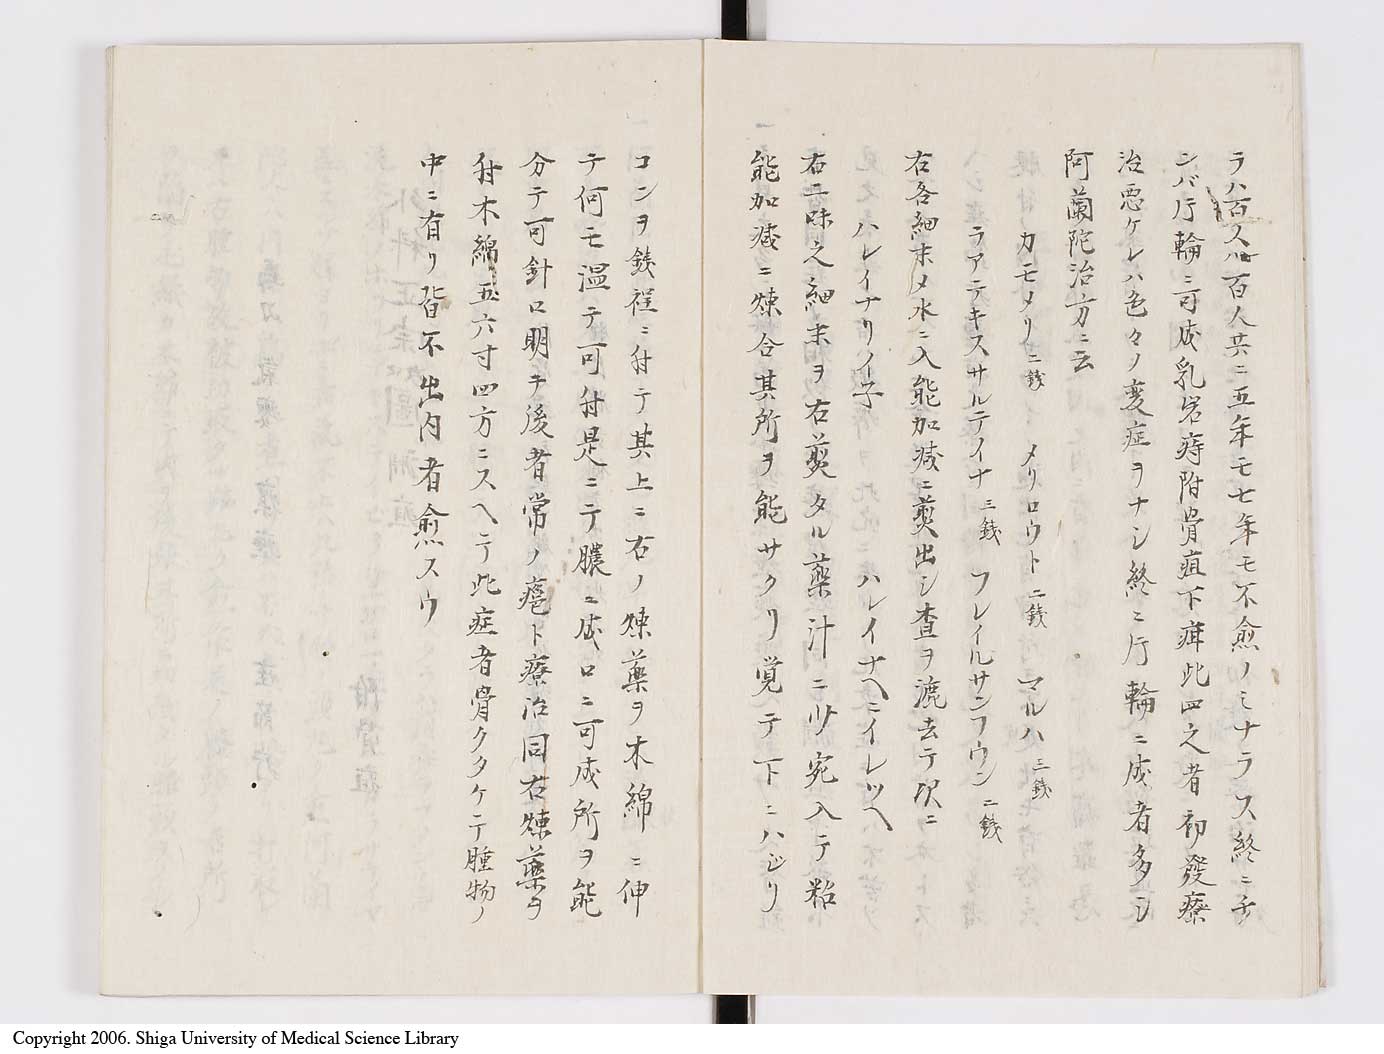 ラハ百人ハ百人共ニ五年モ七年モ不愈ノミナラス終ニチ
ンバ庁輪ニ可成乳岩痔附骨疽下疳此四之者初發療
治悪ケレハ色々ノ変症ヲナシ終ニ庁輪ニ成者多シ
阿蘭陀治方ニ云
カモメリ二銭 メリロウト二銭 マルハ三銭
ラアテキスサルテイナ三銭 フレイルサンフウン二銭
右各細末メ水ニ入能加减ニ煎出シ査ヲ漉去テ次ニ
ハレイナリイ子 ハレイナヘニイレツヘ
右二味之細末ヲ右煎タル薬汁ニ少宛入テ粘
能加减ニ煉合其所ヲ能サクリ覚テ下ニハジリ
コンヲ銭程ニ付テ其上ニ右ノ煉薬ヲ木綿ニ伸
テ何モ温テ可付是ニテ膿ニ成口ニ可成所ヲ能
分テ可針口明テ後者常ノ瘡ト療治同右煉薬ヲ
付木綿五六寸四方ニスヘテ此症者骨クタケテ腫物ノ
中ニ有リ皆不出内者愈スウ
Copyright 2006. Shiga University of Medical Science Library